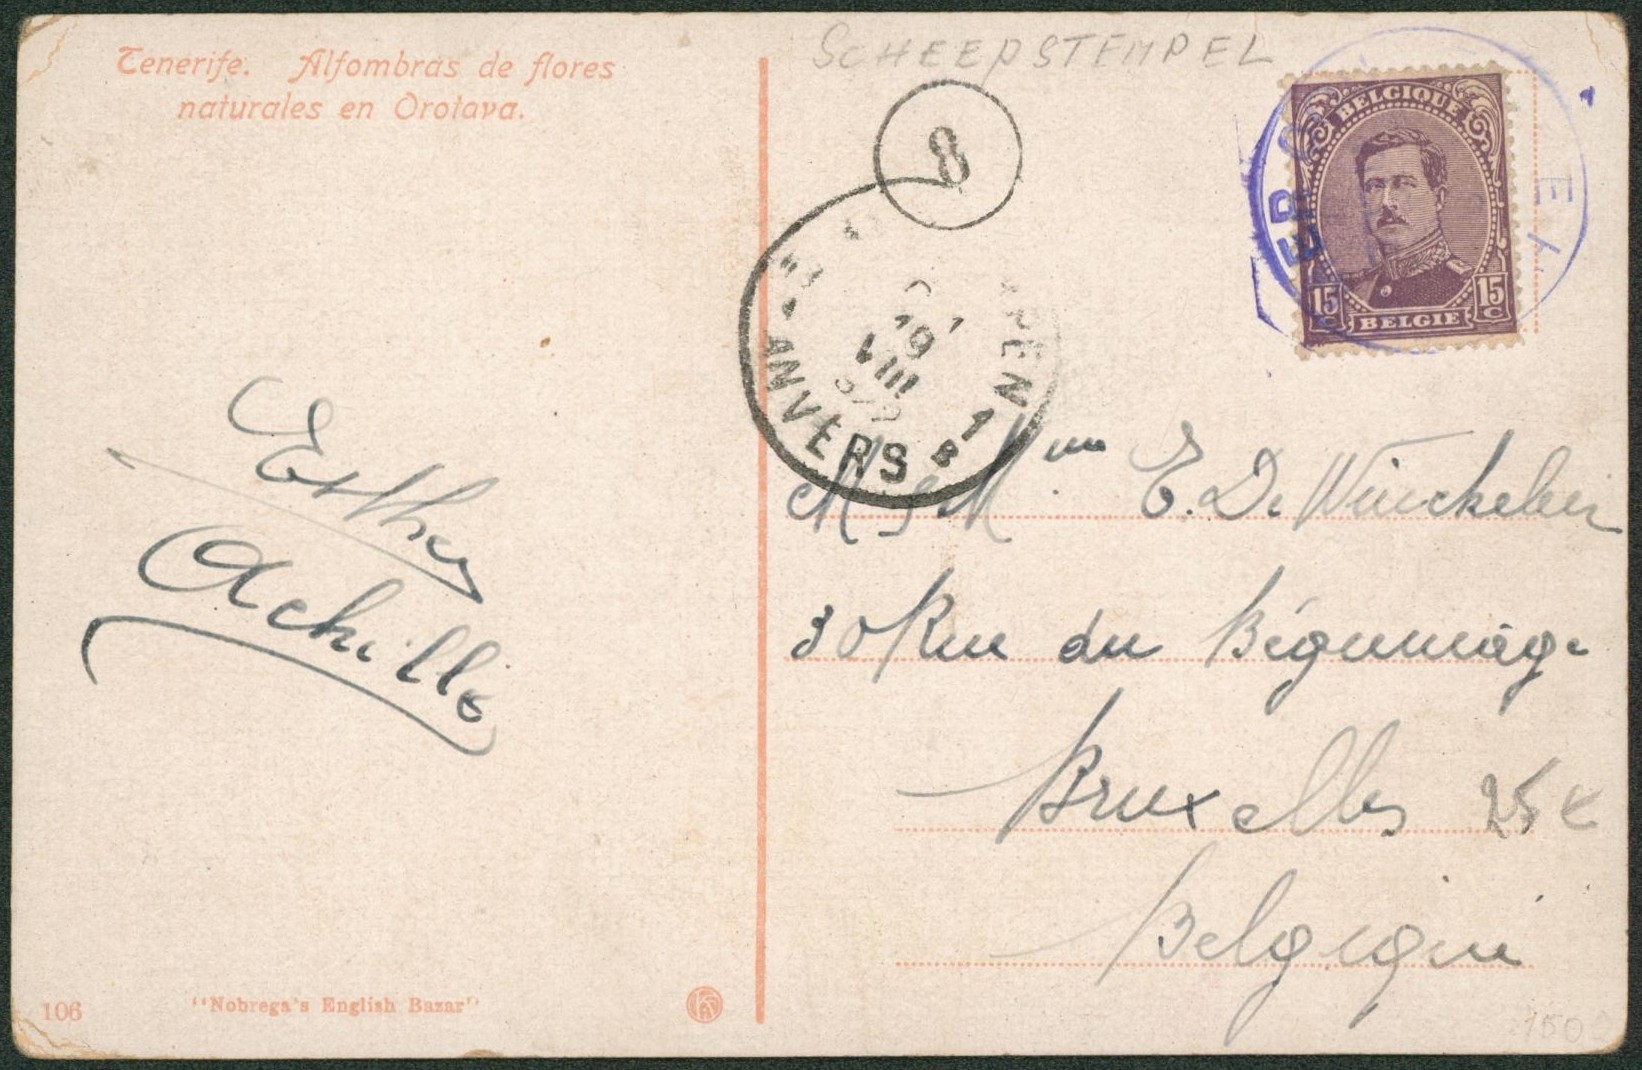 Tenerife. Alfombras de flores
naturales en Orotava.
SCHEEPSTEMPEL
8
BELGIQUE
15 15
c c
BELGIE
19
VIII
ANVERS
1
B
Esther
Achille
M & Mme E. De
30 Rue du
Bruxelles
25 €
Belgique
106
"Nobrega's English Bazar"